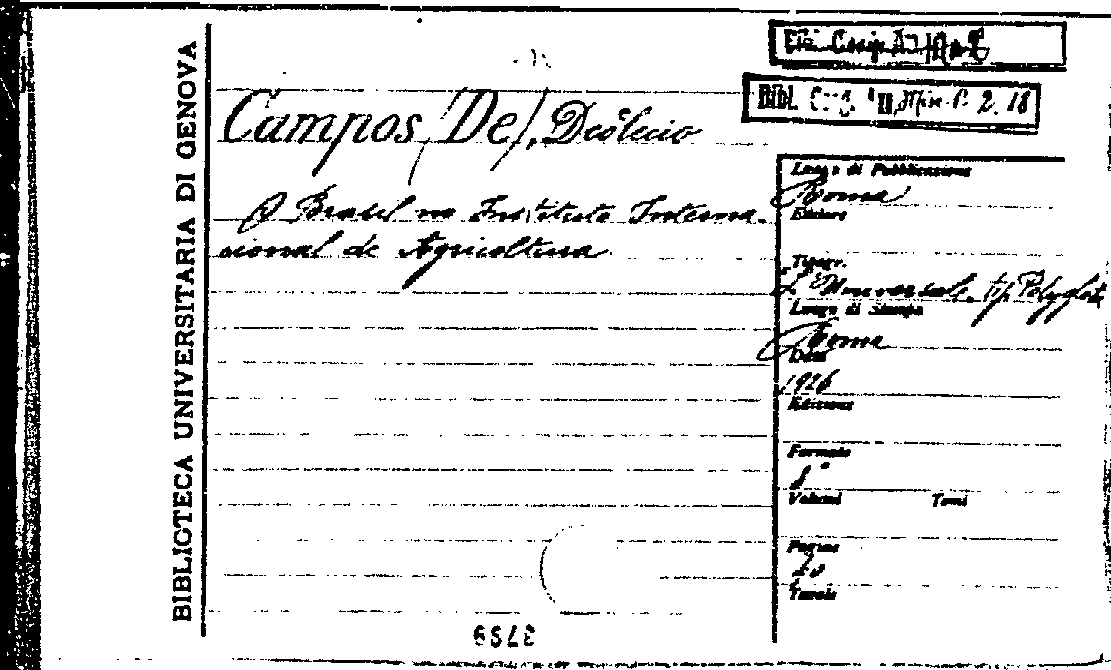 BIBLIOTECA UNIVERSITARIA DI GENOVA
BIBL. 2. 18
Campos (De), Deoclecio
O Brasil no Instituto Interna-
cional de Agricoltura
Luogo di Pubblicazione
Roma
Editore
Tipogr.
L'Universale tip. Poliglotta
Luogo di Stampa
Roma
Data
1926
Edizione
Formato
8°
Volumi Tomi
Pagine
20
Tavole
3799